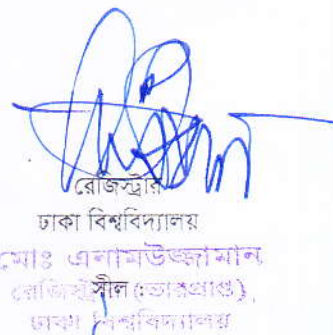 রেজিস্ট্রার
ঢাকা বিশ্ববিদ্যালয়
মোঃ এনামউজ্জামান
(ভারপ্রাপ্ত)
ঢাকা বিশ্ববিদ্যালয়